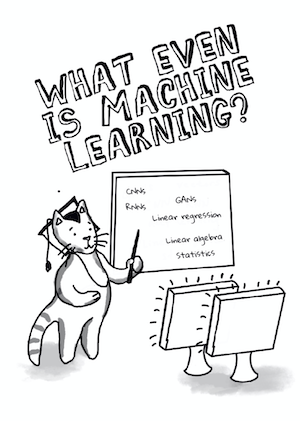 WHAT EVEN
IS MACHINE
LEARNING?
CNNs
GANs
RNNs
Linear regression
Linear algebra
Statistics